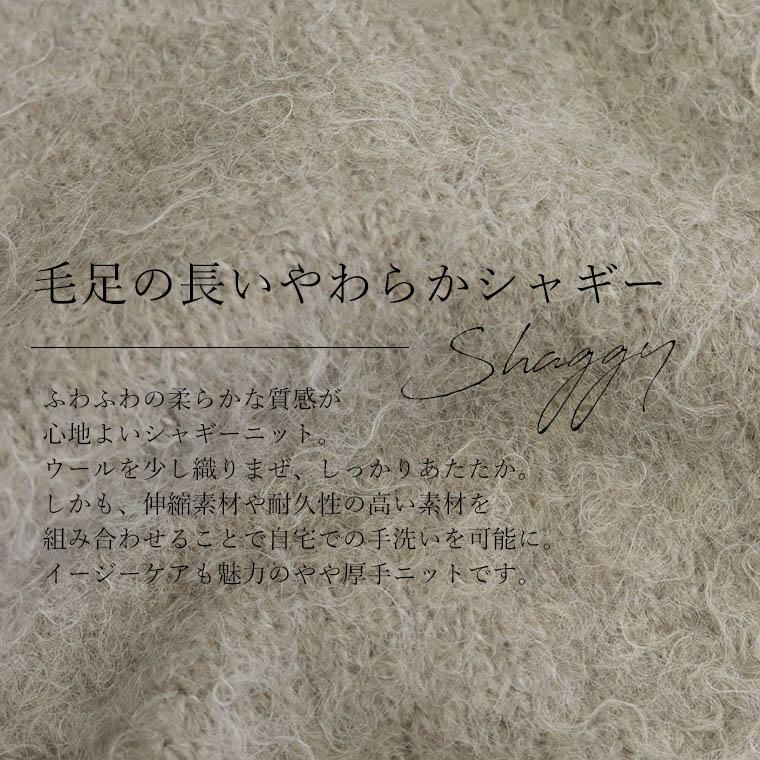 毛足の長いやわらかシャギー
Shaggy
ふわふわの柔らかな質感が
心地よいシャギーニット。
ウールを少し織りまぜ、しっかりあたたか。
しかも、伸縮素材や耐久性の高い素材を
組み合わせることで自宅での手洗いを可能に。
イージーケアも魅力のやや厚手ニットです。